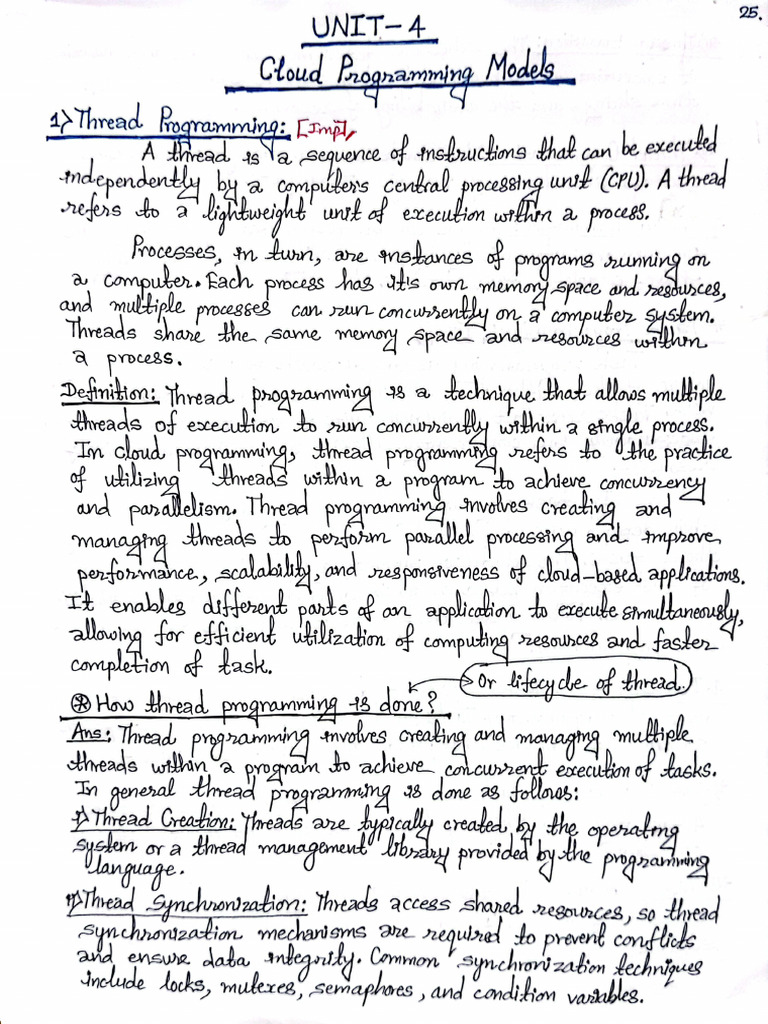 25.
UNIT-4
Cloud Programming Models
1) Thread Programming: [Imp],
A thread is a sequence of instructions that can be executed
independently by a computer's central processing unit (CPU). A thread
refers to a lightweight unit of execution within a process.
Processes, in turn, are instances of programs running on
a computer. Each process has it's own memory space and resources,
and multiple processes can run concurrently on a computer system.
Threads share the same memory space and resources within
a process.
Definition: Thread programming is a technique that allows multiple
threads of execution to run concurrently within a single process.
In cloud programming, thread programming refers to the practice
of utilizing threads within a program to achieve concurrency
and parallelism. Thread programming involves creating and
managing threads to perform parallel processing and improve
performance, scalability, and responsiveness of cloud-based applications.
It enables different parts of an application to execute simultaneously,
allowing for efficient utilization of computing resources and faster
completion of task.
Or lifecycle of thread.
⊛ How thread programming is done?
Ans: Thread programming involves creating and managing multiple
threads within a program to achieve concurrent execution of tasks.
In general thread programming is done as follows:
i) Thread Creation: Threads are typically created by the operating
system or a thread management library provided by the programming
language.
ii) Thread Synchronization: Threads access shared resources, so thread
synchronization mechanisms are required to prevent conflicts
and ensure data integrity. Common synchronization techniques
include locks, mutexes, semaphores, and condition variables.